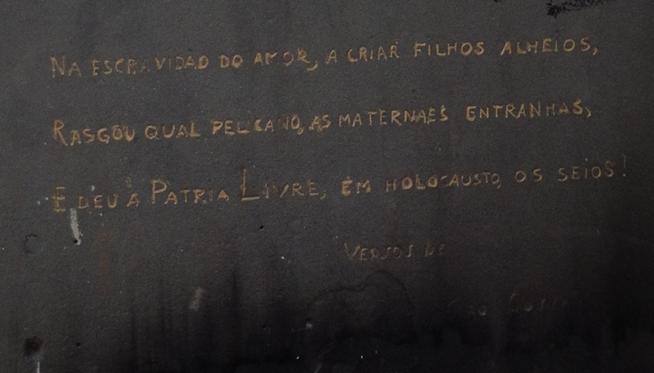 NA ESCRAVIDÃO DO AMOR, A CRIAR FILHOS ALHEIOS,
RASGOU QUAL PELICANO, AS MATERNAES ENTRANHAS,
E DEU A PATRIA LIVRE, EM HOLOCAUSTO, OS SEIOS!
VERSOS DE